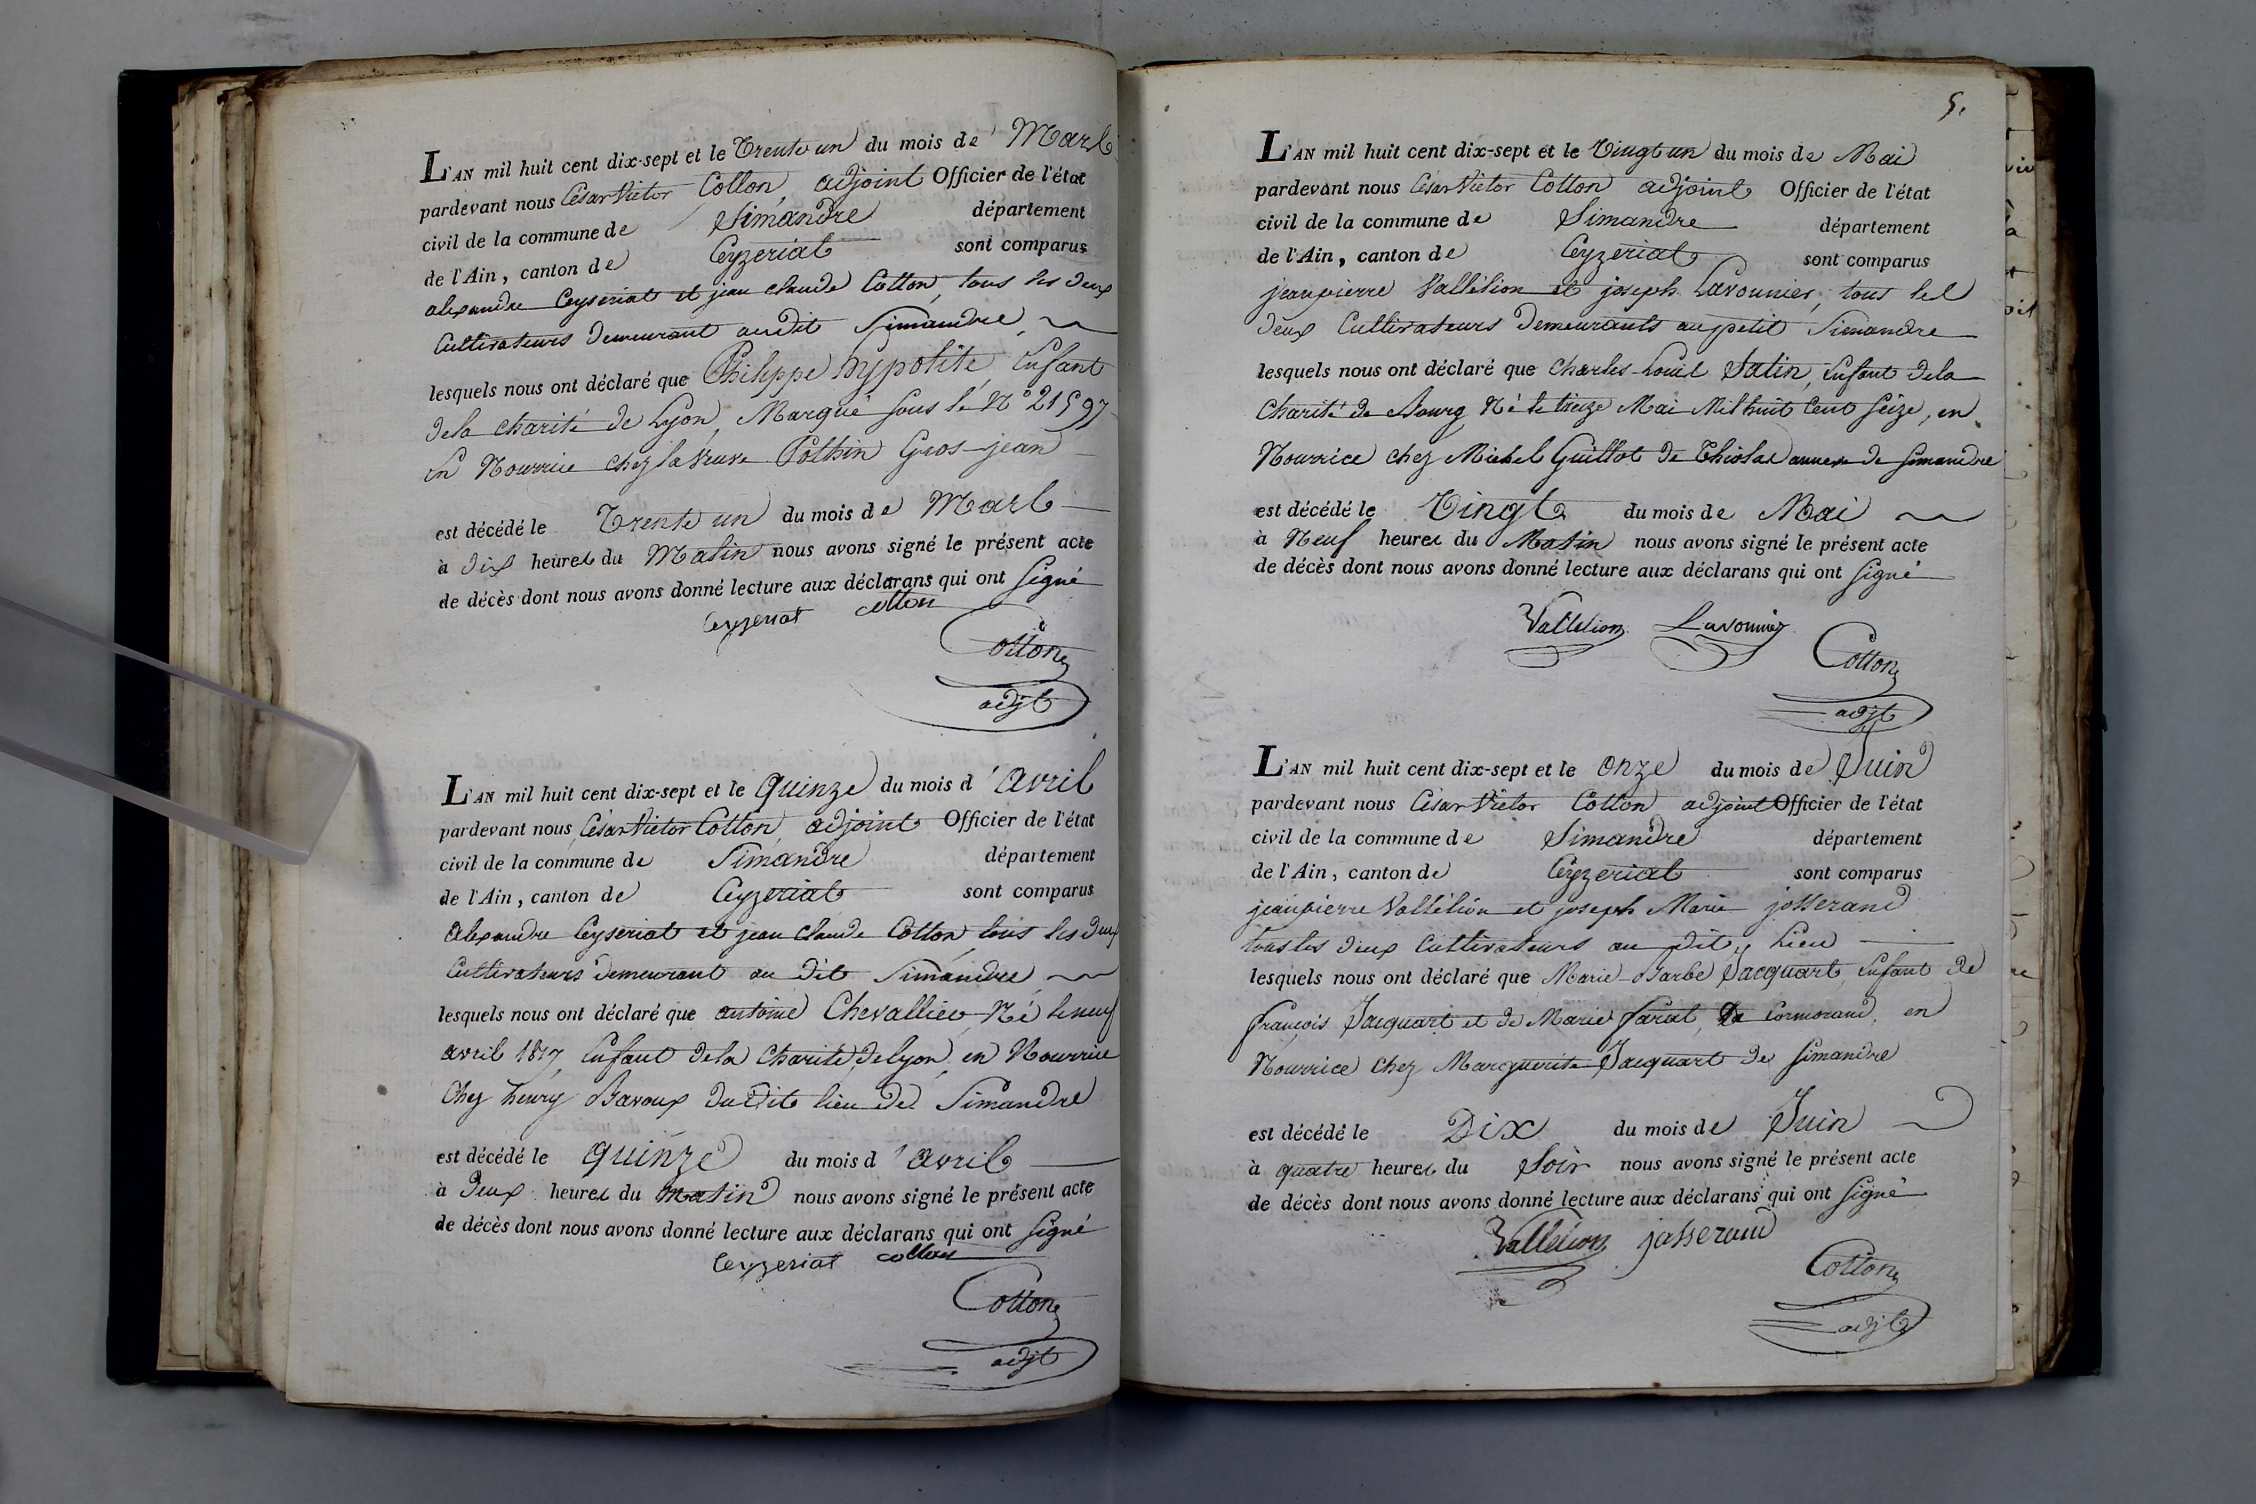 L'AN mil huit cent dix-sept et le Trente un du mois de Mars
pardevant nous César Victor Cotton adjoint Officier de l'état
civil de la commune de Simandre département
de l'Ain, canton de Ceyzeriat sont comparus
alexandre Ceyseriat et jean claude Cotton, tous les deux
Cultivateurs demeurant audit Simandre
lesquels nous ont déclaré que Philippe hypolite Enfant
dela charité de Lyon, Marqué sous le N° 21597
En Nourrice chez la Veuve Pothin Gros-jean
est décédé le Trente un du mois de Mars
à dix heures du Matin nous avons signé le présent acte
de décès dont nous avons donné lecture aux déclarans qui ont signé
Ceyzeriat cotton
Cotton
adjt
L'AN mil huit cent dix-sept et le quinze du mois d'avril
pardevant nous César Victor Cotton adjoint Officier de l'état
civil de la commune de Simandre département
de l'Ain, canton de Ceyzeriat sont comparus
Alexandre Ceyseriat et jean claude Cotton tous les deux
Cultivateurs demeurant au dit Simandre
lesquels nous ont déclaré que antoine Chevallier, Né le neuf
avril 1817, Enfant dela Charité de Lyon, en Nourrice
Chez henry Bavoux dudit lieu de Simandre
est décédé le quinze du mois d'avril
à deux heures du matin nous avons signé le présent acte
de décès dont nous avons donné lecture aux déclarans qui ont signé
Ceyzeriat cotton
Cotton
adjt
5.
L'AN mil huit cent dix-sept et le Vingt un du mois de Mai
pardevant nous César Victor Cotton adjoint Officier de l'état
civil de la commune de Simandre département
de l'Ain, canton de Ceyzeriat sont comparus
jeanpierre Vallélion et joseph Lavounier, tous les
deux Cultivateurs demeurants au petit Simandre
lesquels nous ont déclaré que Charles-Louis Satin, Enfant dela
Charité de Bourg Né le treize Mai Mil huit Cent Seize, en
Nourrice chez Michel Guillot de Thiolas annexe de simandre
est décédé le Vingt du mois de Mai
à Neuf heures du Matin nous avons signé le présent acte
de décès dont nous avons donné lecture aux déclarans qui ont signé
Vallelion Lavounier
Cotton
adjt
L'AN mil huit cent dix-sept et le onze du mois de Juin
pardevant nous César Victor Cotton adjoint Officier de l'état
civil de la commune de Simandre département
de l'Ain, canton de Ceyzeriat sont comparus
jeanpierre Vallélion et joseph Marie josserand
tous les deux Cultivateurs au dit Lieu
lesquels nous ont déclaré que Marie-Barbe Jacquart, Enfant de
françois Jacquart et de Marie farat, De Cormorand, en
Nourrice chez Marguerite Jacquart de simandre
est décédé le Dix du mois de Juin
à quatre heures du Soir nous avons signé le présent acte
de décès dont nous avons donné lecture aux déclarans qui ont signé
Vallélion josserand
Cotton
adjt